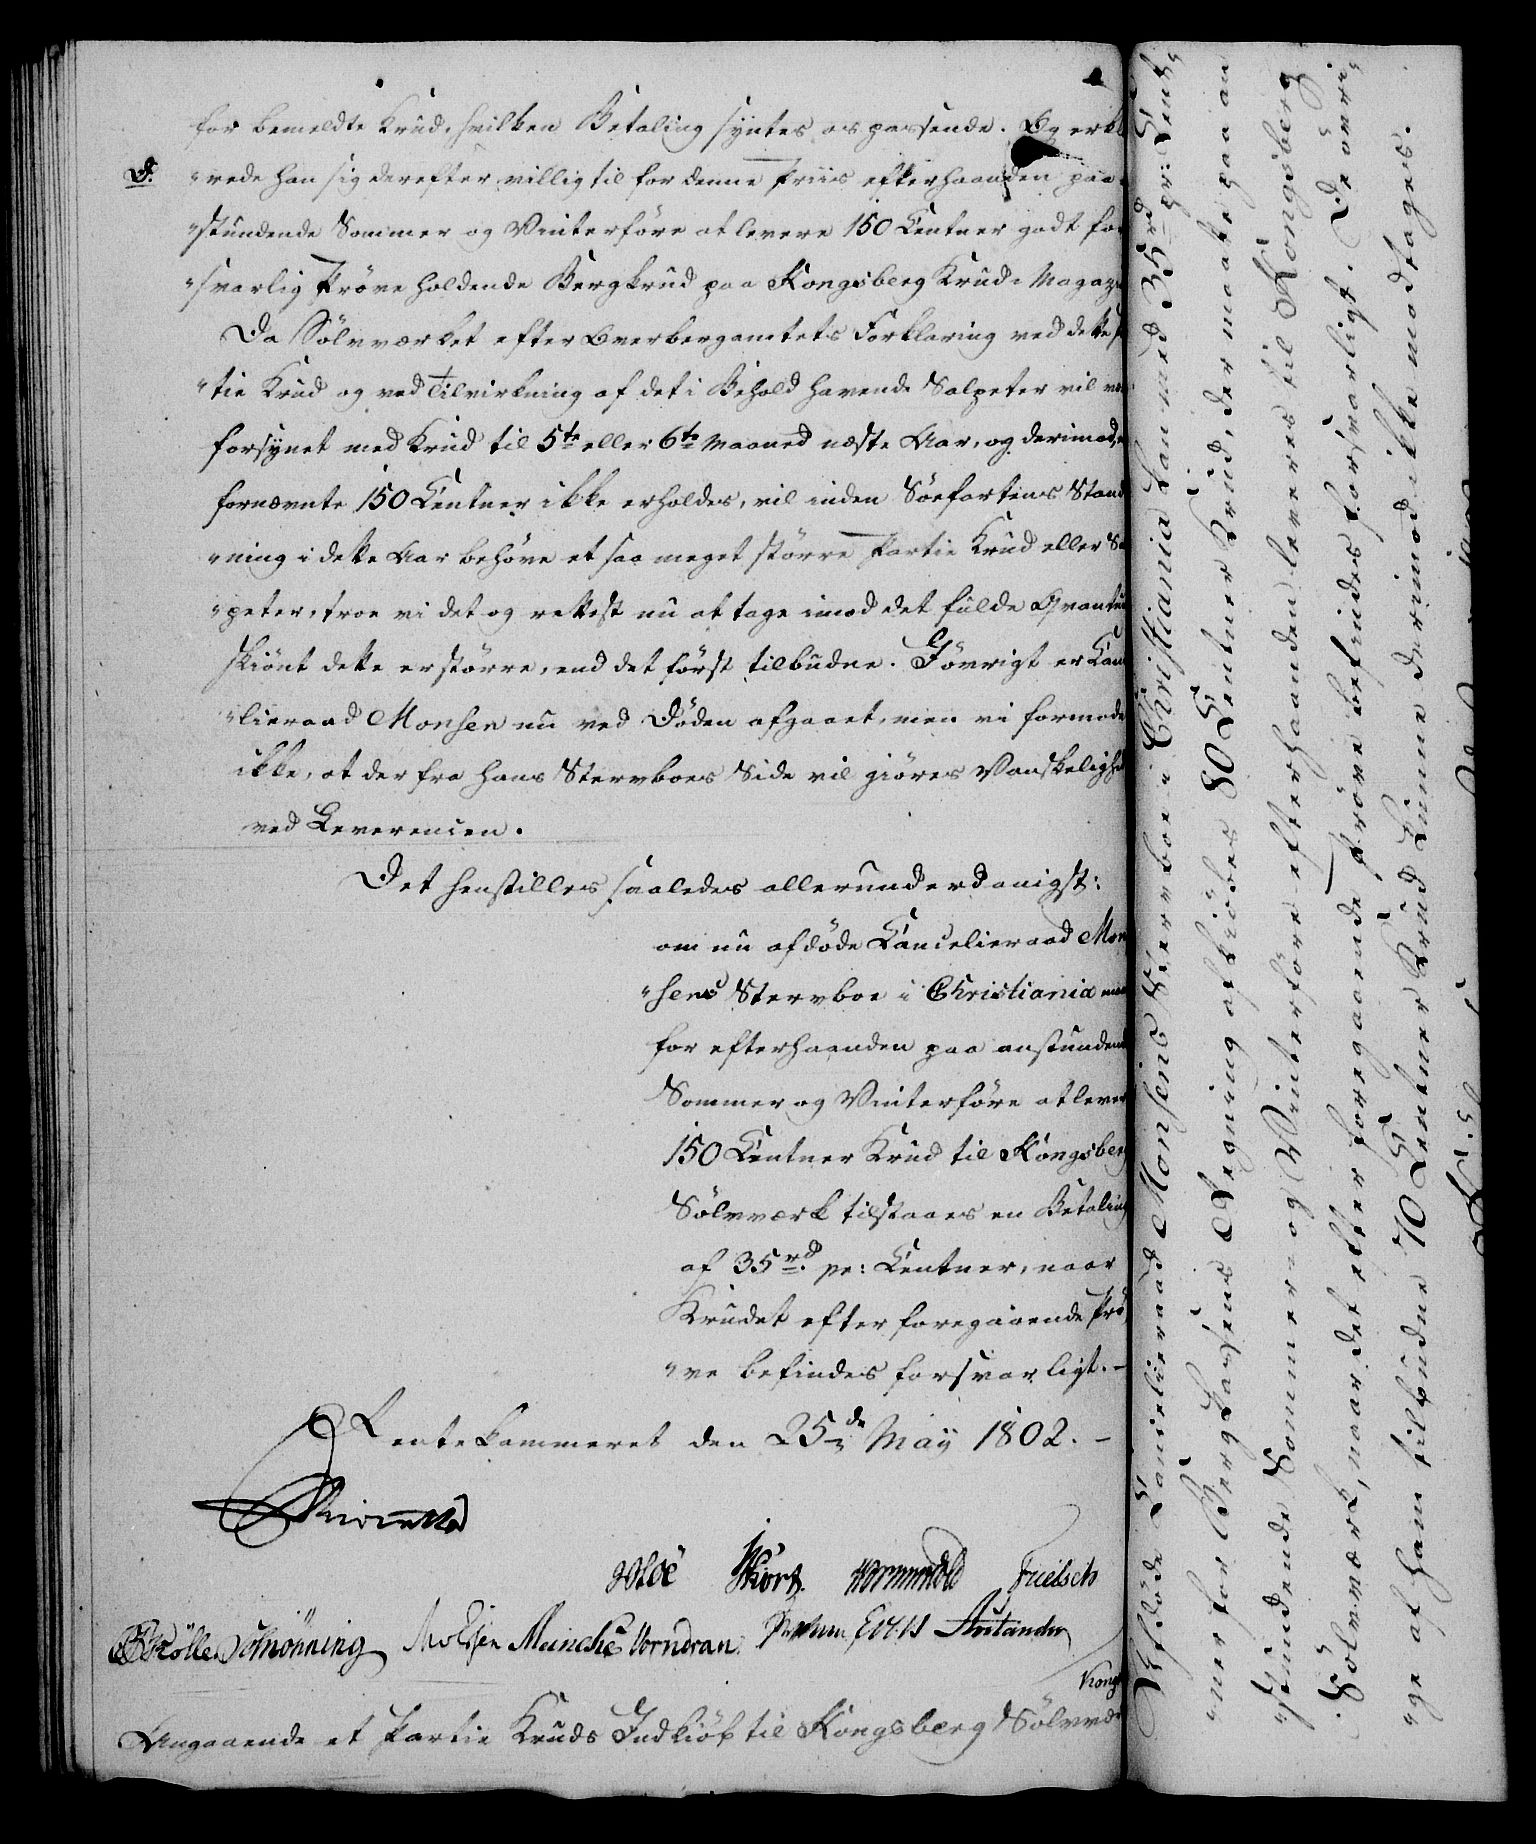 for bemeldte Krud, hvilken Betaling syntes os passende. Og erkl
D. "rede han sig derefter villig til for denne Priis efterhaanden paa
"stundende Sommer og Vinterföre at levere 150 Centner godt for
"svarlig Pröve holdende Bergkrud paa Kongsberg Krud-Magaz
Da Sölvværket efter Overbergamtets Forklaring ved dette
"tie Krud og ved Tilvirkning af det i Behold havende Salpeter vil
forsynet med Krud til 5te eller 6te Maaned næste Aar, og derimod,
fornævnte 150 Centner ikke erholdes, vil inden Söefartens Stand
"ning i dette Aar behöve et saa meget större Partie Krud eller Sa
"peter, troe vi det og rettest nu at tage imod det fulde Qvantu
skiönt dette er större, end det först tilbudne. Iövrigt er Can
"lieraad Monsen nu ved Döden afgaaet, men vi formode
ikke, at der fra hans Stervboes Side vil giöres Vanskelighe
ved Leverencen.
Det henstilles saaledes allerunderdanigst:
om nu afdöde Cancelieraad Mon
"sens Stervboe i Christiania maa
for efterhaanden paa anstundend
Sommer og Vinterföre at lever
150 Centner Krud til Kongsberg
Sölvværk tilstaaes en Betaling
af 35 rd. pr: Centner, naar
Krudet efter foregaaende Prö
"ve befindes forsvarligt. -
Rentekammeret den 25de Maÿ 1802. -
Wormskiold Frielsch
Schönning Meinche Vorndran
Kongl
Angaaende et Partie Kruds Indkiöb til Kongsberg Sölvvær
Afdöde Cancelieraad Monsens Stervboe i Christiania kan med 35 rd pr: Cent
"ner for Bergkassens Regning afkiöbes 80 Centner Krud, der maatte paa an
"stundende Sommer- og Vinterföre efterhaanden leveres til Kongsberg
Sölvværk, naar det efter foregaaende Pröve befindes forsvarligt. De övri
"ge af ham tilbudne 70 Centner Krud kunne derimod ikke modtages.